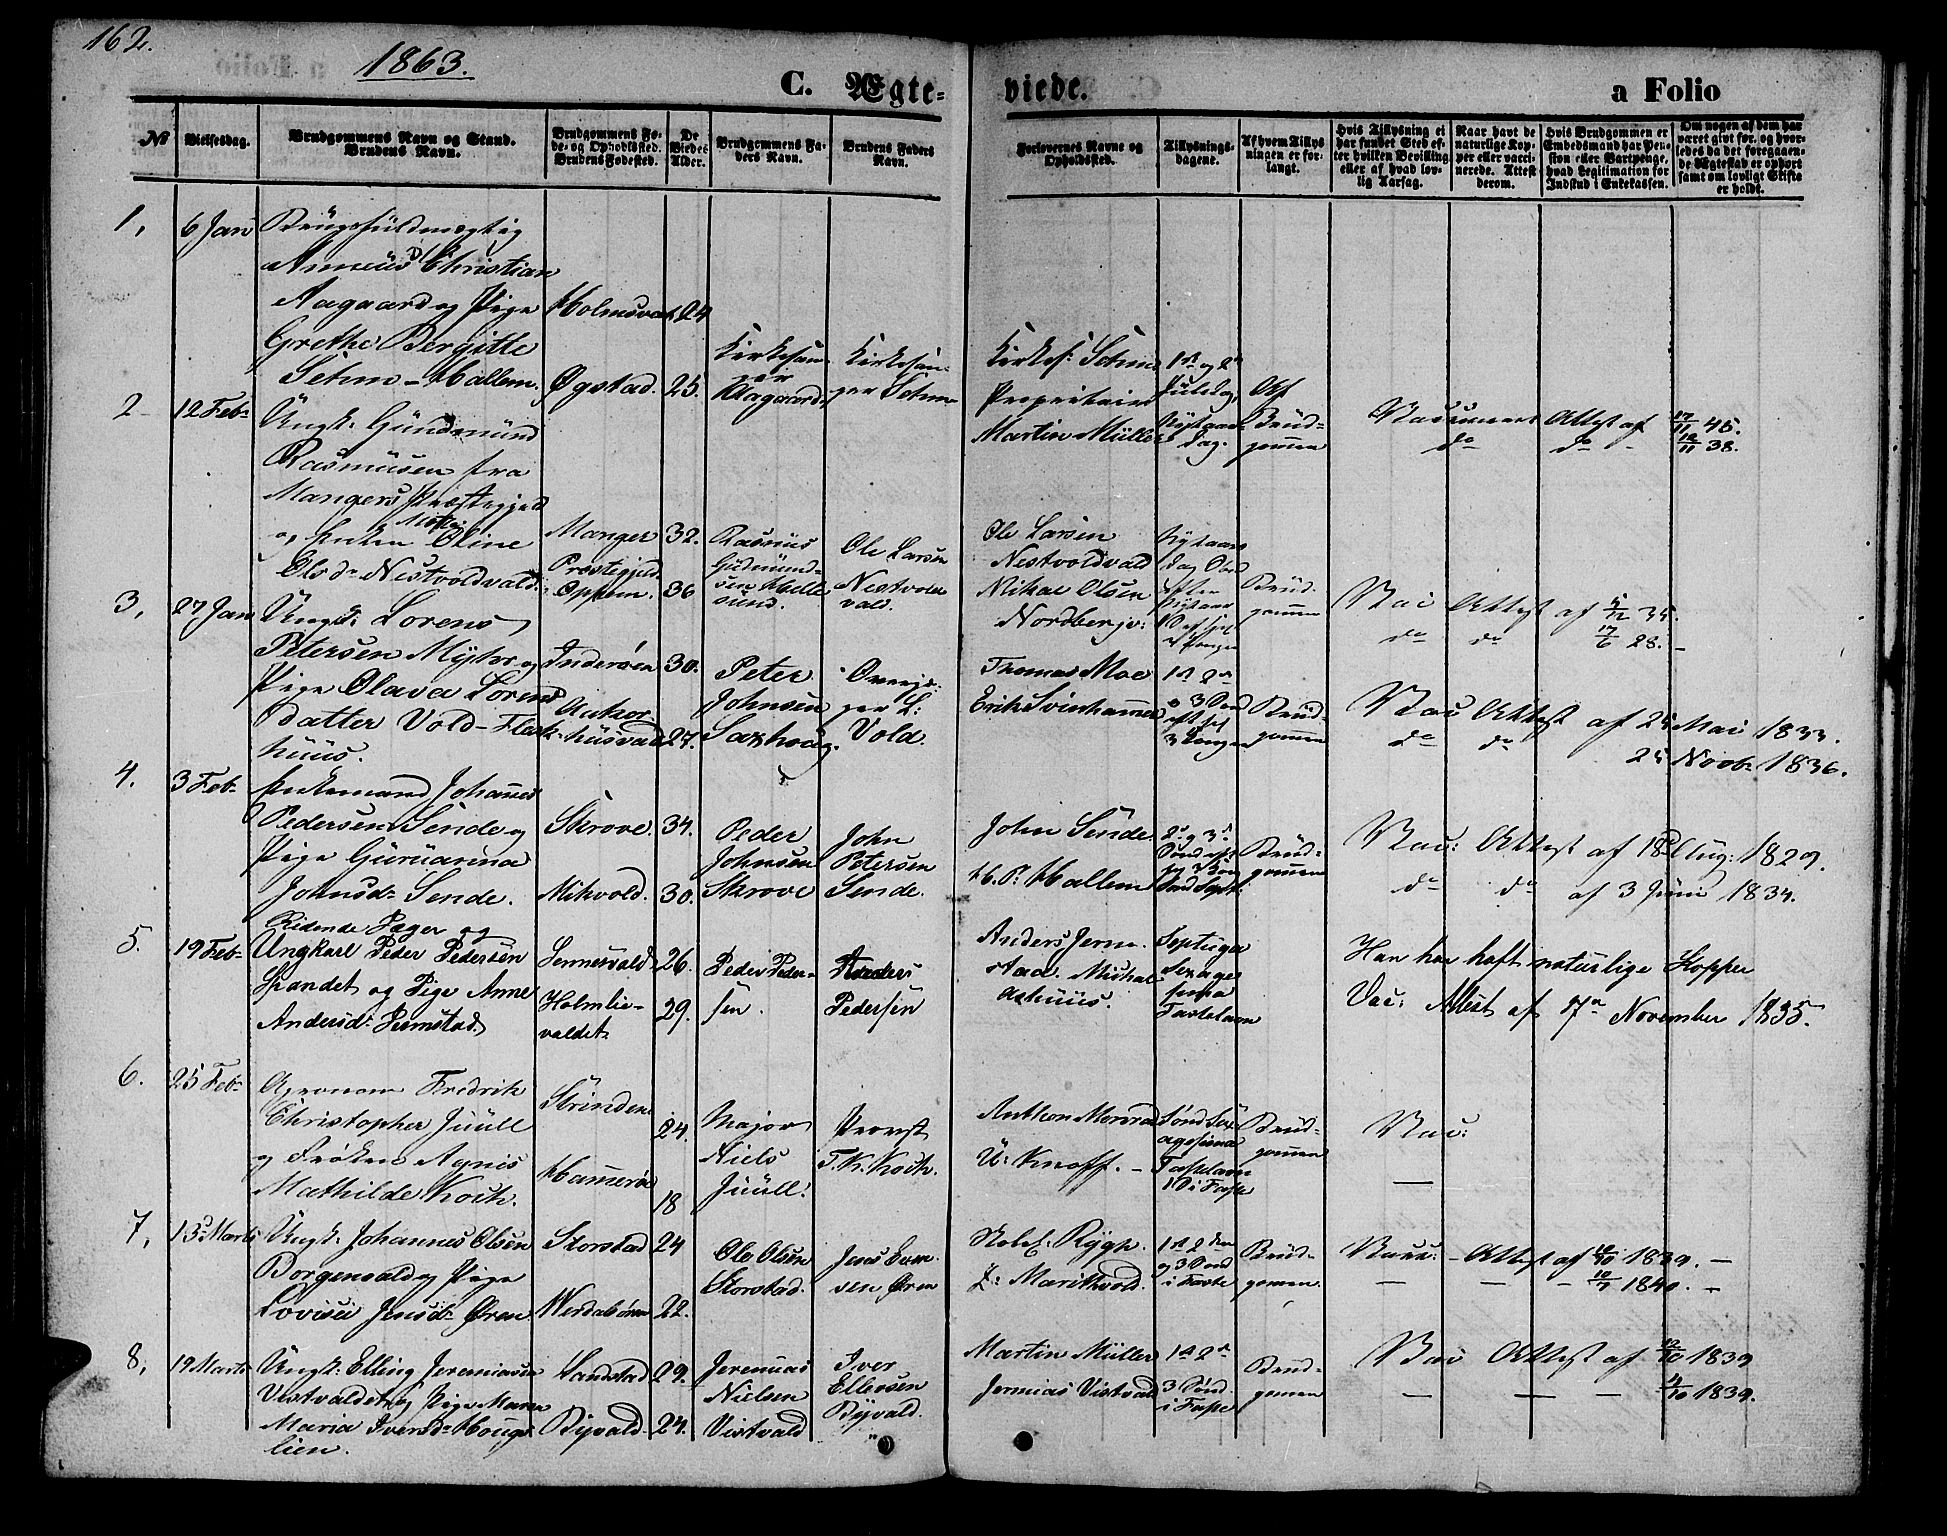 162.
1863.
C. Ægte=
viede.
a Folio
No
Vielsesdag.
Brudgommens Navn og Stand.
Brudens Navn.
Brudgommens Fø-
de- og Opholdsted.
Brudens Fødested.
De
Viedes
Alder.
Brudgommens Fa-
ders Navn.
Brudens Faders
Navn.
Forlovernes Navne og
Opholdssted.
Tillysnings-
dagene.
Af hvem Tillys
ningen er for-
langt.
Hvis Tillysning ei
har fundet Sted ef-
ter hvilken Bevilling
eller af hvad lov-
lig Aarsag.
Naar havt de
naturlige Kop-
per eller vacci-
nerede. Attest
derom.
Hvis Brudgommen er
Embedsmand har Pen-
sion eller Vartpenge,
hvad Legitimation for
Indskud i Enkekassen.
Om nogen af dem har
været givt før, og hvor-
ledes da det foregaaen-
de Ægteskab er ophørt
samt om lovligt Skifte
er holdt.
1, 6 Jan
Christian
Aagaard og Pige
Grethe Bergitte
Sehm - Hallem.
24
Øgstad. 25.
Kirkesan-
ger
Aagaard.
Kirkesan-
ger Sehm
Kirkes: Sehm
Proprietair
Martin Müller
1ste og 2den
Juledag,
Nytaars
dag.
Af
Brud-
gommen
Attest af 17/11 45.
do do 12/11 38.
2 12 Feb:
Ungk: Gundmund
Rasmusen fra
Mangers Præstegjeld
og Enken Oline
Olsdr Nestvoldvald.
Manger
Præstegjeld.
Ophem.
32.
36
Rasmus
Gudmund-
sen Helle
sund.
Ole Larsen
Nestvold
vald.
Ole Larsen
Nestvoldvald
Mikal Olsen
Nordberg
Brud-
gommen
Vac Attest af 35.
do do 17/6 28.
3, 27 Jan
Ungk: Lorens
Petersen Myhr og
Pige Olava Lorens
datter Vold - Flek-
huus.
Inderøen 30.
27.
Peter
Johnsen
Saxhaug.
L:
Vold.
Thomas Moe
Erik Svinhammer
1ste 2den
Brud-
gommen
Vac Attest af 25 Mai 1833.
do do 25 Novbr 1836.
4. 3 Feb:
Enkemand Johannes
Pedersen Sende og
Pige Guruanna
Johnsdr Sende.
Skrove. 34.
Mikvold. 30.
Peder
Johnsen
Skrove
John
Petersen
Sende.
John Sende
H. P. Hallem
Brud-
gommen
Vac: Attest af 18 Aug: 1829.
do do af 3 Juni 1834.
5. 19 Feb:
Ridende Jæger og
Ungkarl Peder Pedersen
Spandet og Pige Anne
Andersdr Jermstad
Sennesvald 26.
Holmlie-
valdet
29.
Peder Peder-
sen.
Anders
Pedersen
Anders Jerm-
stad. Mikal
Aahuus.
Septuages
Sexages
sima
Fastelavn
Han har haft naturlige Kopper
Vac: Attest af 17de November 1835.
6. 25 Feb:
Agronom Fredrik
Christopher Juull
og Frøken Agnis
Mathilde Koch.
Strinden
24.
Hamerøe
18
Major
Niels
Juull.
Provst
T. K. Koch.
Anthon Monrad
U: Knoff. -
Sønd Sex
agesima
Fastelavn
1 S i Faste
Brud-
gommen
Vac:
7, 13 Marts
Ungk: Johannes Olsen
Borgenvald og Pige
Lovise Jensdr Øren
Storstad 24
Werdalsøren 22.
Ole Olsen
Storstad.
Jens Even-
sen Øren
Rygh.
Marithvold.
1ste 2den
og 3 Sønd
i Faste
Brud-
gommen.
Vacc: - Attest af 1839. -
- - - 1840. -
8, 19 Marts
Ungk: Elling Jeremiassen
Vistvaldet og Pige Maren
Maria Iversdr Houg-
lien.
Sandstad 29.
Byvald 24.
Jeremias
Nielsen
Vistvald
Iver
Ellevsen
Byvald.
Martin Müller
Jermias Vistvald
1ste 2den
3 Sønd.
i Faste
Brud-
gommen
Vac Attest af 1839
- - - 1839.